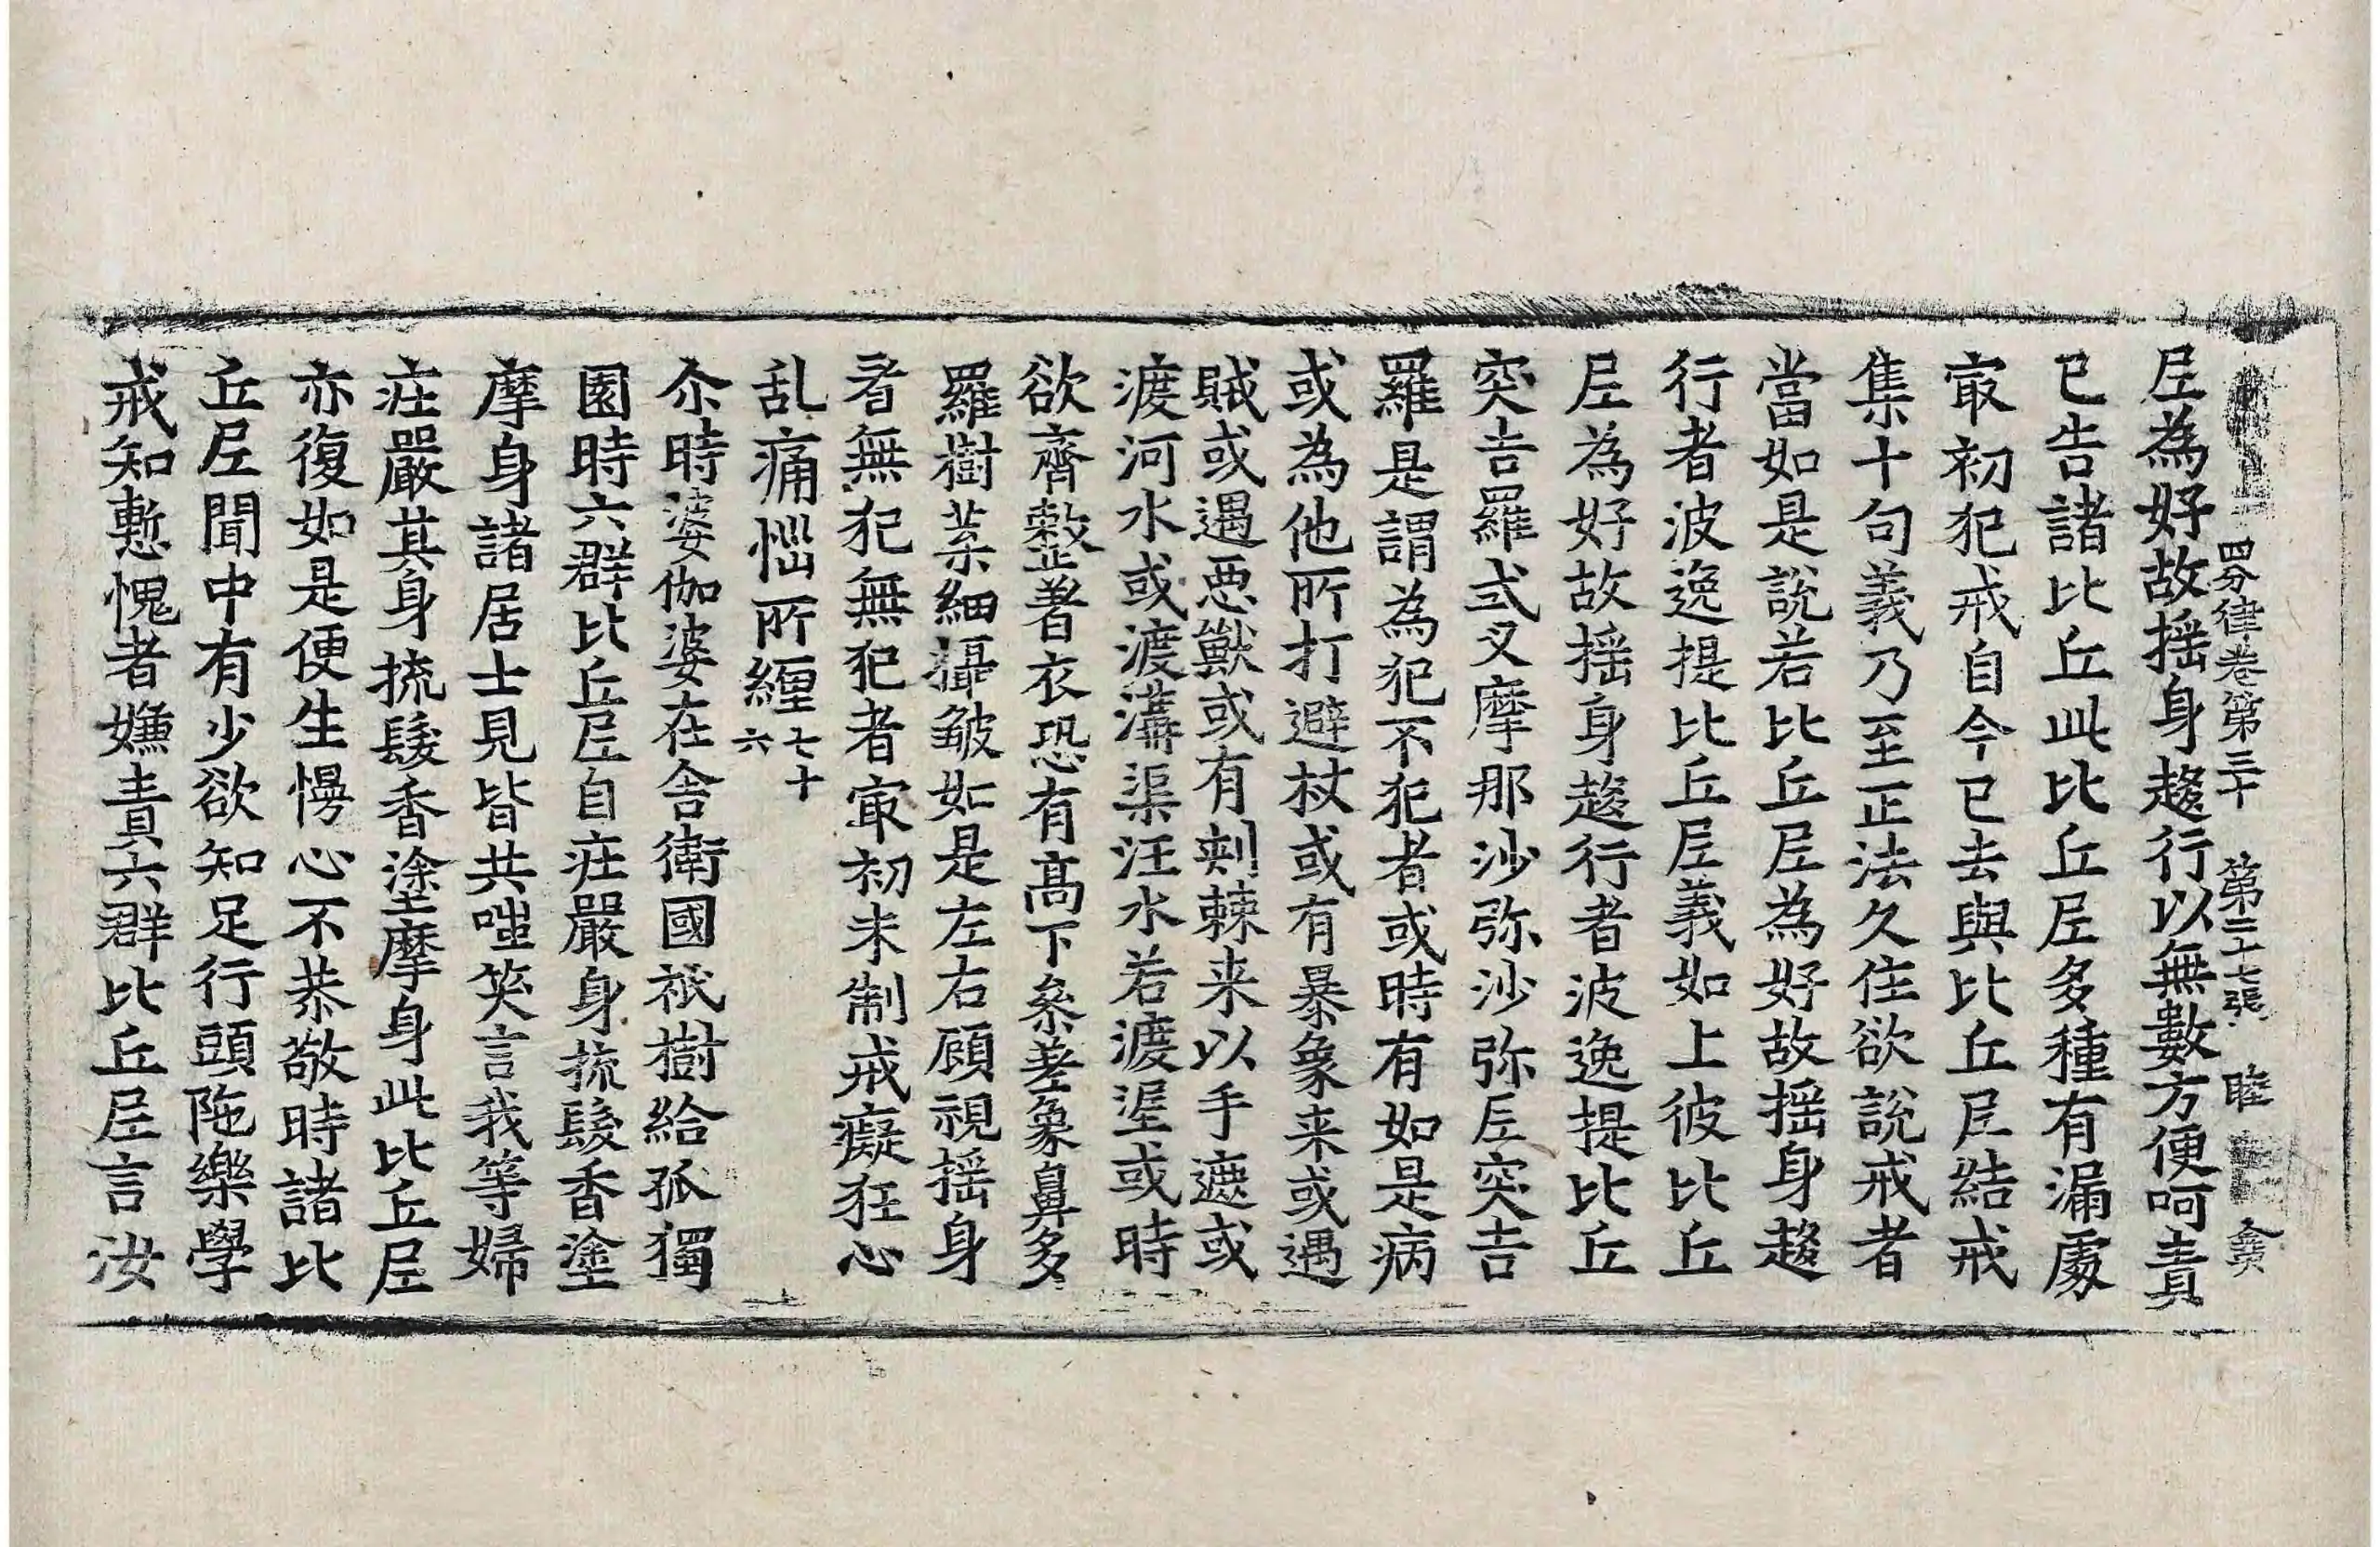 四分律卷第三十 第二十七張 睦
尼為好故揺身趍行以無數方便呵責
已告諸比丘此比丘尼多種有漏處
㝡初犯戒自今已去與比丘尼結戒
集十句義乃至正法久住欲說戒者
當如是說若比丘尼為好故揺身趍
行者波逸提比丘尼義如上彼比丘
尼為好故揺身趍行者波逸提比丘
突吉羅式叉摩那沙弥沙弥尼突吉
羅是謂為犯不犯者或時有如是病
或為他所打避杖或有暴象来或遇
賊或遇惡獸或有刺棘来以手遮或
渡河水或渡溝渠汪水若渡渥或時
欲齊整著衣恐有髙下叅差象鼻多
羅樹葉細攝皺如是左右顧視揺身
看無犯無犯者㝡初未制戒癡狂心
乱痛惱所纏七十六
尒時婆伽婆在舍衛國祇樹給孤獨
園時六群比丘尼自疰嚴身梳髮香塗
摩身諸居士見皆共嗤笑言我等婦
疰嚴其身梳髮香塗摩身此比丘尼
亦復如是便生慢心不恭敬時諸比
丘尼聞中有少欲知足行頭陁樂學
戒知慙愧者嫌責六群比丘尼言汝